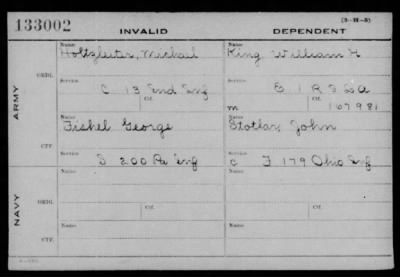 133002
INVALID
DEPENDENT
(3-H-5)
ARMY
NAVY
ORIG.
Name:
Holtzleiter, Michael
Name:
King William H
Service:
C 13 Ind Inf
Service:
E 1 R I LA
Ctf.
m 167981
CTF.
Name
Fishel George
Name
Stotlar, John
Service
I 200 Pa Inf
Service
C I 179 Ohio Inf
ORIG.
Name:
Name:
Ctf.
Ctf.
CTF.
Name:
Name: